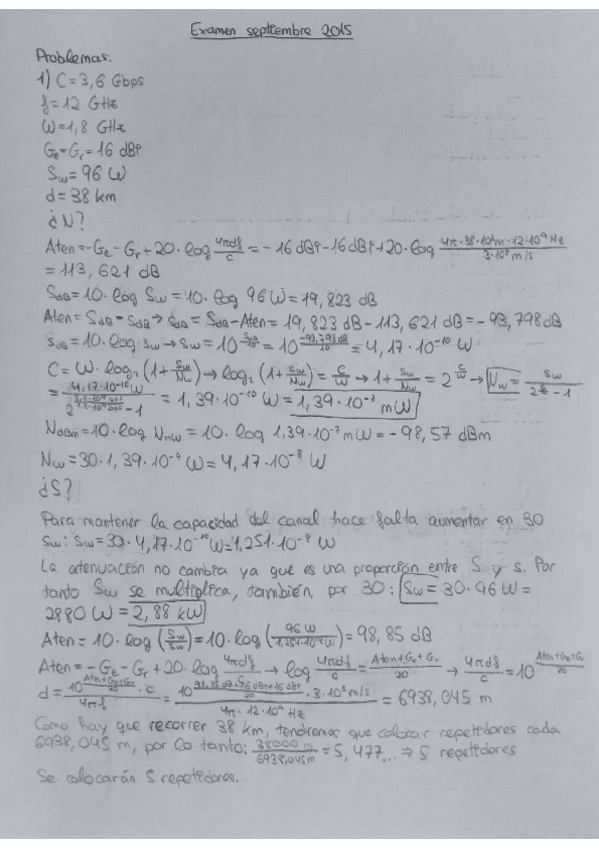 Examen septiembre 2015
Problemas:
1) C=3,6 Gbps
f=12 GHz
W=1,8 GHz
Ge=Gr=16 dBi
Sw=96 W
d=38 km
¿N?
Aten=-Ge-Gr+20·log 4πdf/c = -16 dBi-16 dBi+20·log 4π·38·10³m·12·10⁹Hz/3·10⁸m/s
=113,621 dB
SdB=10·log Sw=10·log 96 W=19,823 dB
Aten=SdB-sdB→sdB=SdB-Aten=19,823 dB-113,621 dB=-93,798dB
sdB=10·log sw→sw=10^(sdB/10)=10^(-93,798dB/10)=4,17·10⁻¹⁰ W
C=W·log₂(1+sw/Nw)→log₂(1+sw/Nw)=C/W→1+sw/Nw=2^(C/W)→Nw=sw/(2^(C/W)-1)
=4,17·10⁻¹⁰W/(2^(3,6·10⁹bps/1,8·10⁹bps)-1)=1,39·10⁻¹⁰ W=1,39·10⁻⁷ mW
NdBm=10·log NmW=10·log 1,39·10⁻⁷mW=-98,57 dBm
Nw=30·1,39·10⁻⁹ W=4,17·10⁻⁸ W
¿S?
Para mantener la capacidad del canal hace falta aumentar en 30
sw: sw=30·4,17·10⁻¹⁰W=1,251·10⁻⁸ W
La atenuación no cambia ya que es una proporción entre S y s. Por
tanto Sw se multiplica, también, por 30: Sw=30·96 W=
2880 W=2,88 kW
Aten=10·log(Sw/sw)=10·log(96 W/1,251·10⁻⁸W)=98,85 dB
Aten=-Ge-Gr+20·log 4πdf/c→log 4πdf/c=Aten+Ge+Gr/20→4πdf/c=10^(Aten+Ge+Gr/20)
d=10^(Aten+Ge+Gr/20)·c/4πf=10^(98,85 dB+16 dBi+16 dBi/20)·3·10⁸m/s/4π·12·10⁹Hz=6938,045 m
Como hay que recorrer 38 km, tendremos que colocar repetidores cada
6938,045 m, por lo tanto: 38000 m/6938,045m=5,477...⇒5 repetidores
Se colocarán 5 repetidores.